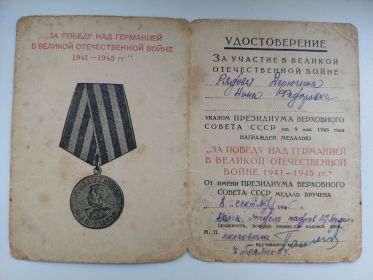 "ЗА ПОБЕДУ НАД ГЕРМАНИЕЙ
В ВЕЛИКОЙ ОТЕЧЕСТВЕННОЙ ВОЙНЕ
1941—1945 гг."
УДОСТОВЕРЕНИЕ
ЗА УЧАСТИЕ В ВЕЛИКОЙ
ОТЕЧЕСТВЕННОЙ ВОЙНЕ
Рядовая
Нина Федоровна
УКАЗОМ ПРЕЗИДИУМА ВЕРХОВНОГО
СОВЕТА СССР от 9 мая 1945 года
НАГРАЖДЕН МЕДАЛЬЮ
"ЗА ПОБЕДУ НАД ГЕРМАНИЕЙ
В ВЕЛИКОЙ ОТЕЧЕСТВЕННОЙ
ВОЙНЕ 1941—1945 гг."
ОТ ИМЕНИ ПРЕЗИДИУМА ВЕРХОВНОГО
СОВЕТА СССР МЕДАЛЬ ВРУЧЕНА
8
отдела кадров
М. П.